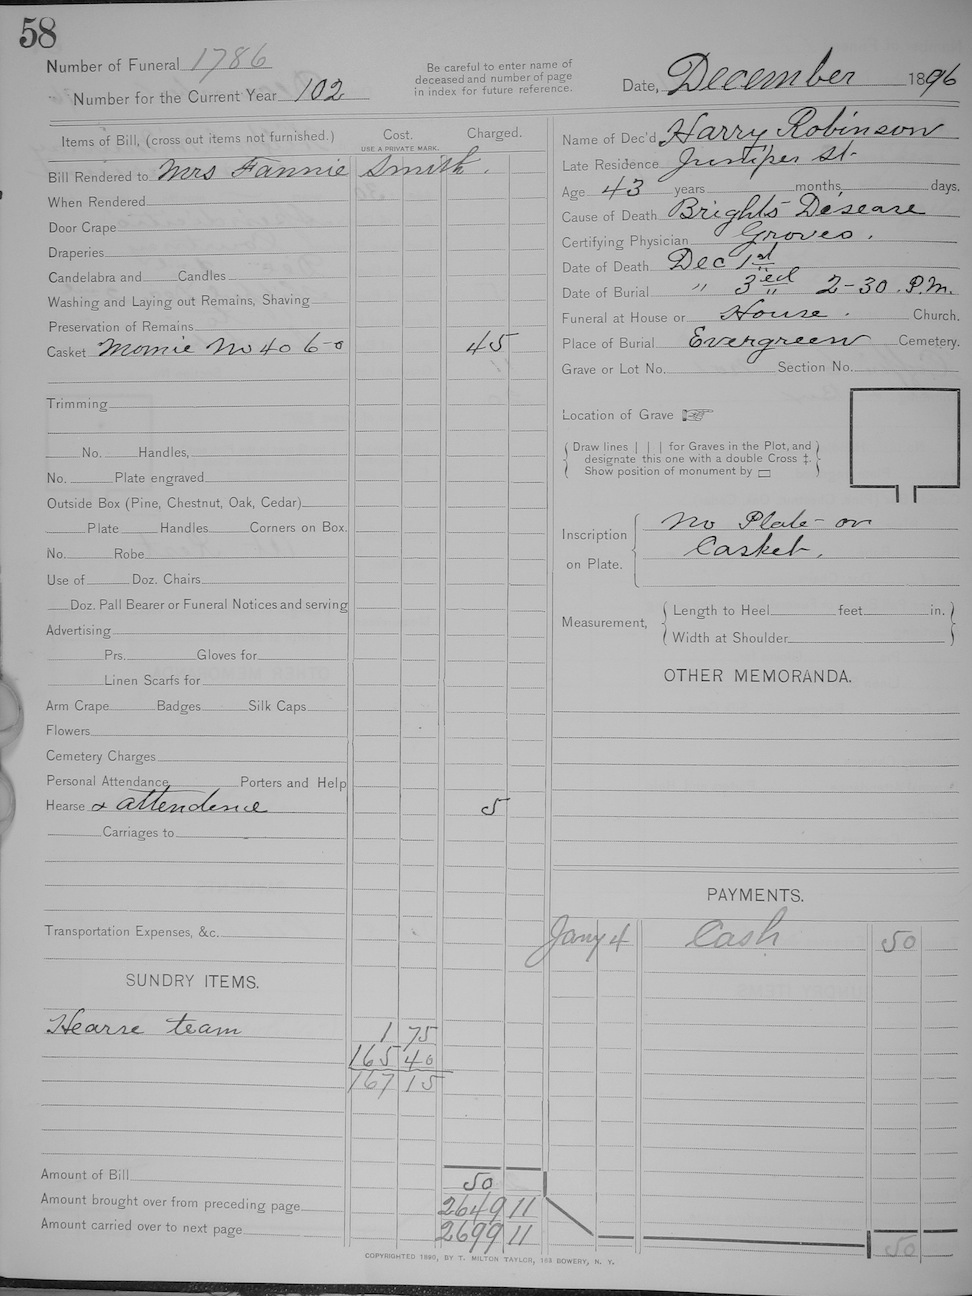 58
Number of Funeral 1786
Number for the Current Year 102
Be careful to enter name of
deceased and number of page
in index for future reference.
Date, December 1896
Items of Bill, (cross out items not furnished.) Cost. Charged.
USE A PRIVATE MARK.
Bill Rendered to Mrs Fannie Smith.
When Rendered
Door Crape
Draperies
Candelabra and Candles
Washing and Laying out Remains, Shaving
Preservation of Remains
Casket Momie No 40 6-0 45
Trimming
No. Handles,
No. Plate engraved
Outside Box (Pine, Chestnut, Oak, Cedar)
Plate Handles Corners on Box.
No. Robe
Use of Doz. Chairs
Doz. Pall Bearer or Funeral Notices and serving
Advertising
Prs. Gloves for
Linen Scarfs for
Arm Crape Badges Silk Caps
Flowers
Cemetery Charges
Personal Attendance Porters and Help
Hearse & attendence 5
Carriages to
Transportation Expenses, &c.
SUNDRY ITEMS.
Hearse team 1 75
165 40
167 15
Amount of Bill 50
Amount brought over from preceding page 2649 11
Amount carried over to next page 2699 11
Name of Dec'd Harry Robinson
Late Residence Juniper St.
Age 43 years months days.
Cause of Death Brights Desease
Certifying Physician Groves.
Date of Death Dec 1st
Date of Burial " 3ed 2-30 P.M.
Funeral at House or House. Church.
Place of Burial Evergreen Cemetery.
Grave or Lot No. Section No.
Location of Grave
Draw lines | | | for Graves in the Plot, and
designate this one with a double Cross ‡.
Show position of monument by ▭
Inscription on Plate. No Plate on
Casket.
Measurement, Length to Heel feet in.
Width at Shoulder
OTHER MEMORANDA.
PAYMENTS.
Jany 4 Cash 50
50
COPYRIGHTED 1890, BY T. MILTON TAYLOR, 188 BOWERY, N. Y.